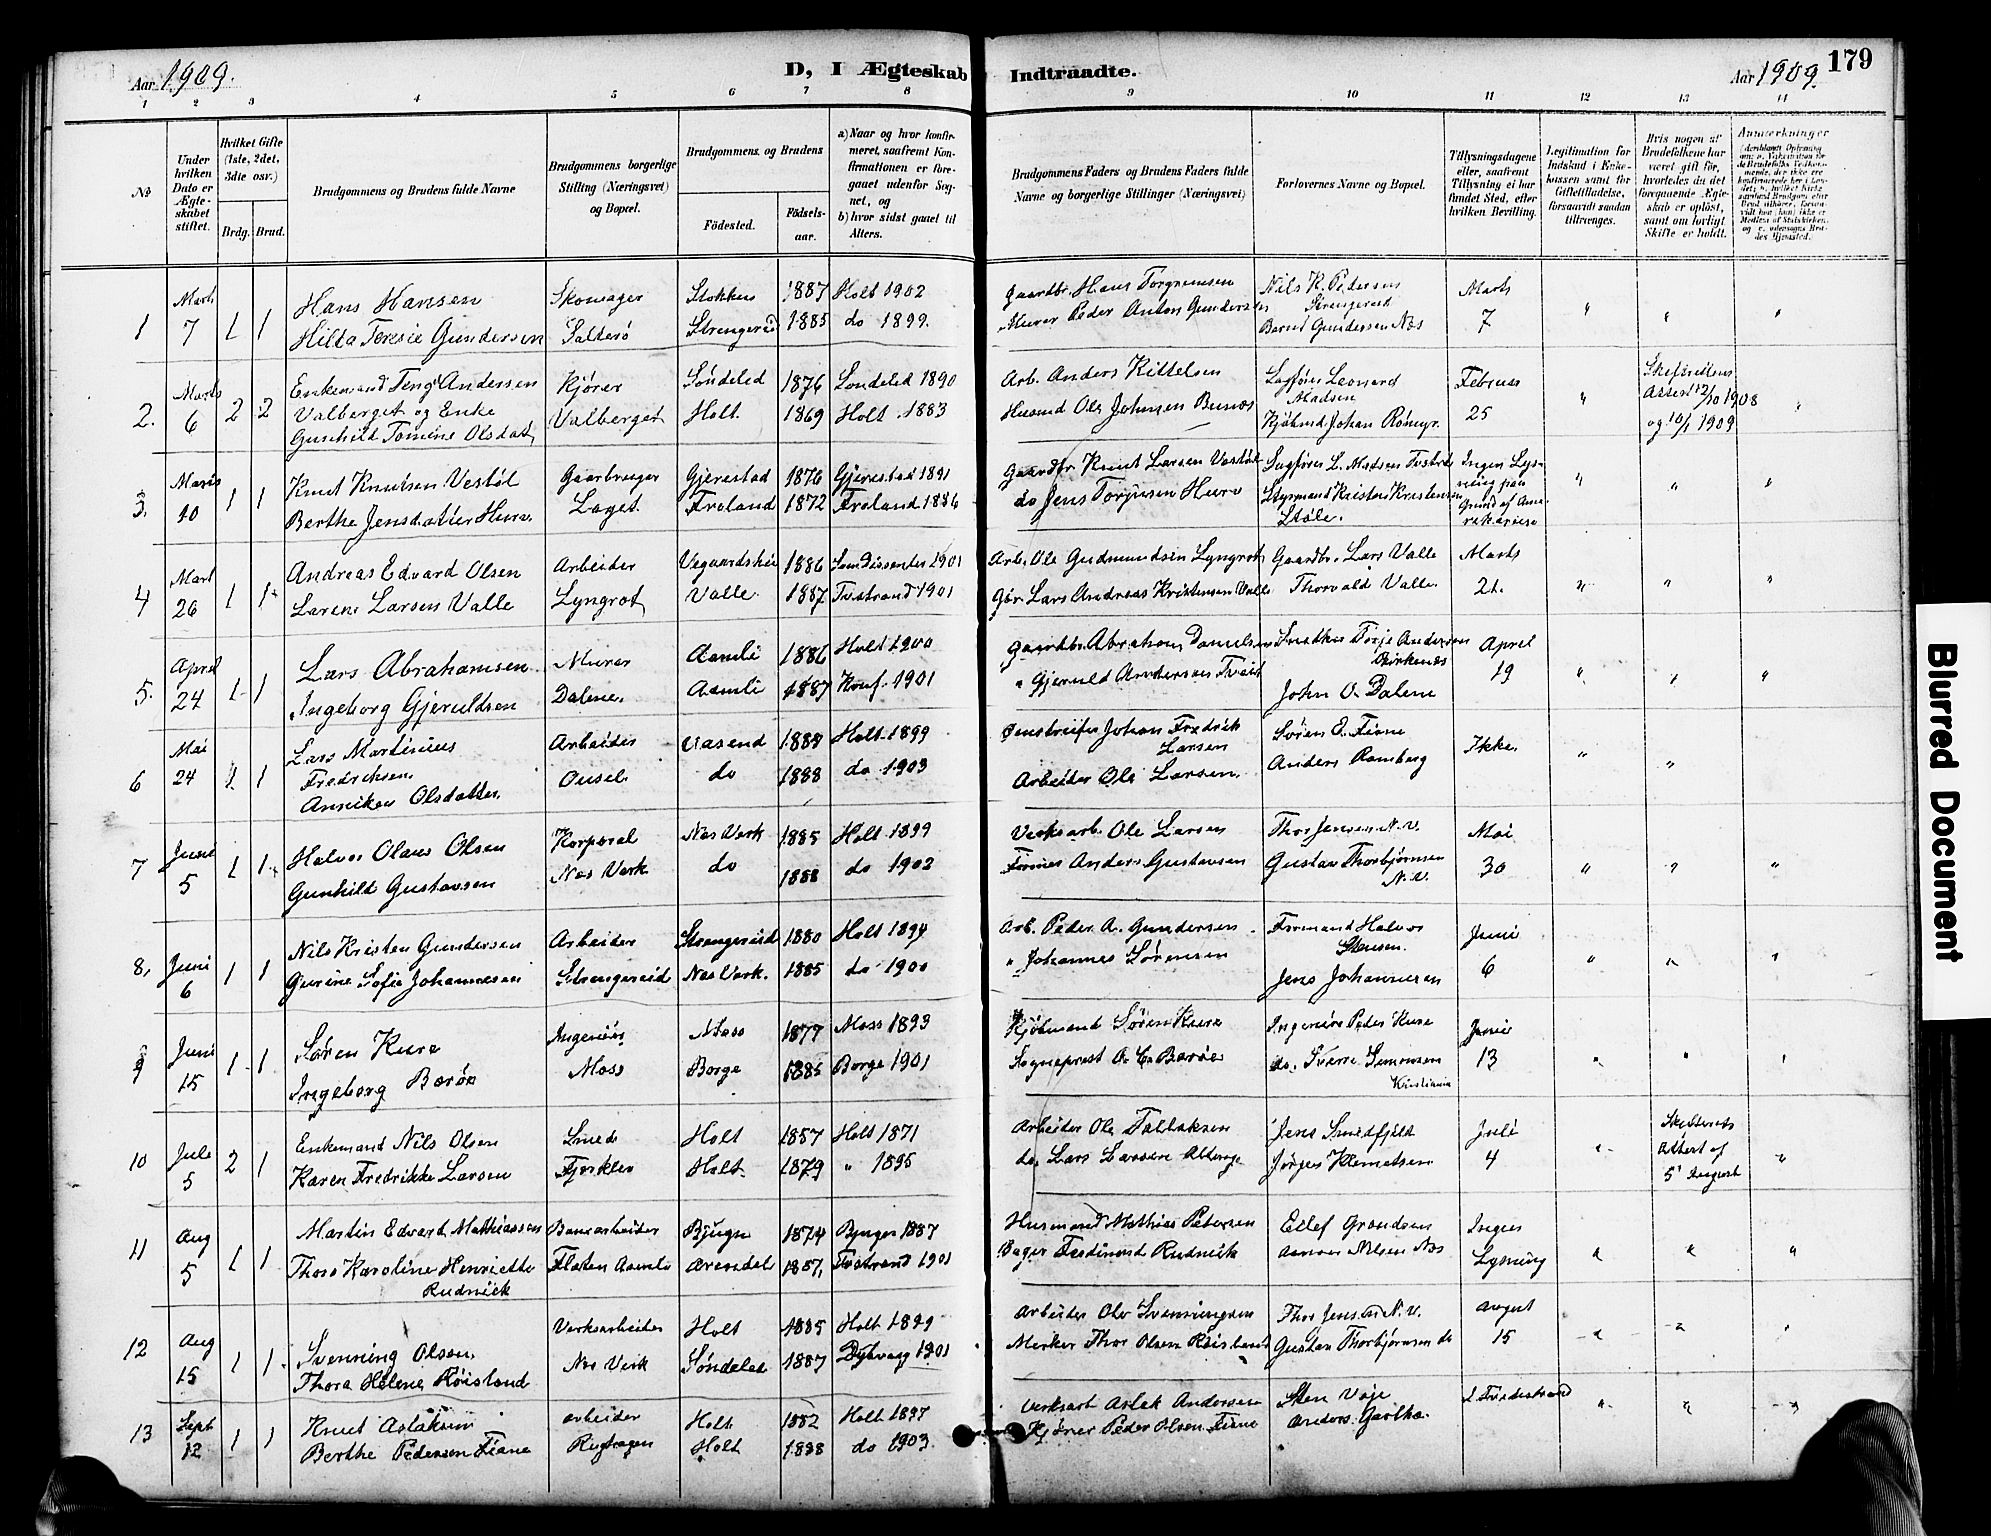 Aar 1909.
D, I Ægteskab Indtraadte.
Aar 1909.
179
1 2 3 4 5 6 7 8 9 10 11 12 13 14
No
Under hvilken Dato er Ægteskabet stiftet.
Hvilket Gifte (1ste, 2det, 3die osv.)
Brdg. Brud.
Brudgommens og Brudens fulde Navne
Brudgommens borgerlige Stilling (Næringsvei) og Bopæl.
Brudgommens og Brudens
Fødested.
Fødselsaar.
a) Naar og hvor konfirmeret, saafremt Konfirmationen er foregaaet udenfor Sognet, og
b) hvor sidst gaaet til Alters.
Brudgommens Faders og Brudens Faders fulde Navne og borgerlige Stillinger (Næringsvei)
Forlovernes Navne og Bopæl.
Tillysningsdagene eller, saafremt Tillysning ei har fundet Sted, efter hvilken Bevilling.
Legitimation for Indskud i Enkekassen samt for Giftetilladelse, forsaavidt saadan tiltrænges.
Hvis nogen af Brudefolkene har været gift før, hvorledes da det foregaaende Ægteskab er opløst, samt om lovligt Skifte er holdt.
Anmærkninger
1 Marts 7 1 1
Hans Hansen Skomager Stokken 1887 Holt 1902
Hilda Teresie Gundersen Salterø Strengereid 1885 do 1899.
Gaardbr. Hans Torgrimsen Nils K. Pedersen Strengereid Marts
Murer Peder Anton Gundersen Bernt Gundersen Næs 7 " " "
2. Marts 6 2 2
Enkemand Andersen Kjører Søndeled 1876 Søndeled 1890
Valberget og Enke Valberget Holt. 1869 Holt. 1883
Gunhild Tomine Olsdat
Arb. Anders Kittelsen Sagfører Leonard Madsen Februar
Husmd Ole Johnsen Bunæs Kjøbmd Johan 25 "
Skifterettens Attest 12/10 1908 og 10/1 1909 "
3. Marts 10 1 1
Knut Knutsen Vestøl Gaardbruger Gjerestad 1876 Gjerestad 1891
Berthe Jensdatter Laget. Froland 1872 Froland 1886
Gaardbr Knut Larsen Vestøl Sagfører L. Madsen Ingen Lys-
do Jens Torjusen Styrmand Kristen Kristensen Støle. ning paa Grund af " " "
4 Mart 26 1 1
Andreas Edvard Olsen Arbeider Vegaardshei 1886 Dissenter 1901
Larene Larsen Valle Lyngrot Valle 1887 Tvestrand 1901
Arb. Ole Gudmundsen Lyngrot Gaardbr. Lars Valle Marts
Gbr. Lars Andreas Kristensen Valle Thorvald Valle. 21. " " "
5. April 24 1 1
Lars Abrahamsen Murer Aamli 1886 Holt 1900
Ingeborg Gjeruldsen Dalene. Aamli 1887 Konf. 1901
Gaardbr. Abraham Danielsen Torje Andersen Birkenes April
" Gjeruld Andersen John O. Dalene 19 " " "
6 Mai 24 1 1
Lars Martinius Fredriksen Arbeider Vasend Holt 1899
Anniken Olsdatter. Ousel do 1888 do 1903
Johan Fredrik Larsen Søren O. Fiane Ikke.
Arbeider Ole Larsen. Anders Ramberg " "
7 Juni 5 1 1
Halvor Olaus Olsen Korporal Næs Verk 1885 Holt 1899
Gunhild Gustavsen Næs Verk do 1888 do 1902
Verksarb. Ole Larsen Thor Jensen N. V. Mai
Former Anders Gustavsen Gustav Thorbjørnsen N. V. 30 " " "
8, Juni 6 1 1
Nils Kristen Gundersen Arbeider Strengereid 1880 Holt 1894
Gurine Sofie Johannesen Strengereid Næs Verk. 1885 do 1900
Arb. Peder A. Gundersen Formand Halvor Juni
" Johannes Sørensen Jens Johannesen 6 " " "
9 Juni 15 1 1
Søren Kure Ingeniør Moss 1877 Moss 1893
Ingeborg Barøe Moss Borge 1885 Borge 1901
Kjøbmand Søren Kure Ingeniør Peder Kure Juni
Sogneprest A. C. Barøe do. Sverre Simonsen Kristiania 13 " " "
10 Juli 5 2 1
Enkemand Nils Olsen Smed Holt 1857 Holt 1871
Karen Fredrikke Larsen Fjerkleiv Holt 1879 " 1895
Arbeider Ole Tallaksen Jens Smedfjeld Juli
do. Lars Larsen Jørgen Klemetsen 4 "
Skifterets Attest af 5' August "
11 Aug 5 1 1
Martin Edvard Mathiassen Banearbeider Bjugn 1874 Bjugn 1887
Thora Karoline Henriette Rudnick Flaten Aamli Arendal Tvestrand 1901
Husmand Mathias Petersen Eilef Grandsen Ingen
Bager Ferdinand Rudnick Nilsen Næs Lysning " " "
12 Aug 15 1 1
Svenning Olsen. Verksarbeider Holt 1885 Holt 1899
Thora Helene Røisland Næs Verk Søndeled 1887 Dybvaag 1901
Arbeider Olav Svenningsen Thor Jensen N. V. August
Thor Olsen Røisland Gustav Thorbjørnsen do 15 " " "
13 Sept 12 1 1
Knut Aslaksen Arbeider Holt 1882 Holt 1897
Berthe Pedersen Fiane Holt 1888 do 1903
Verksarb Aslak Andersen Sten Vaje
Kjører Peder Olsen Fiane Anders " " "
Blurred Document